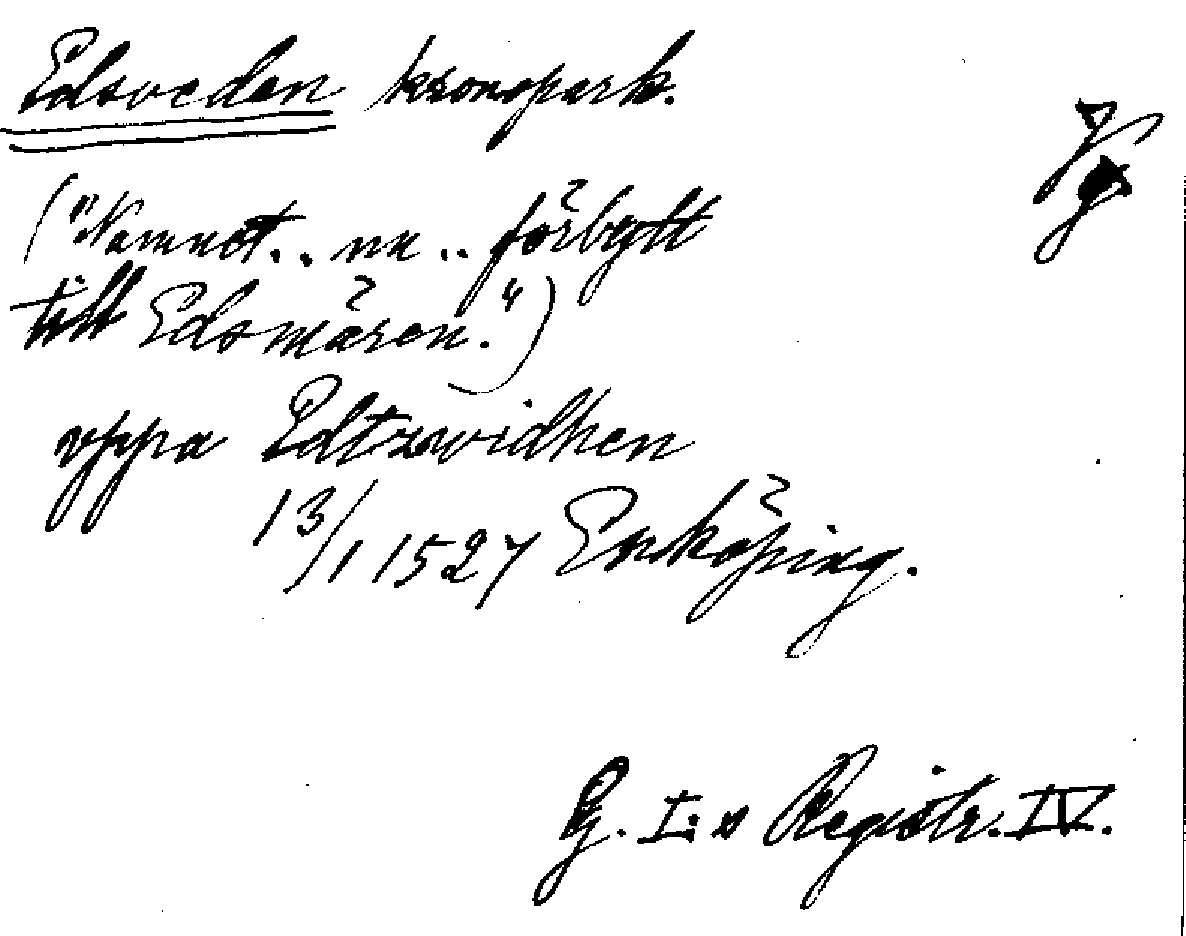 Edsveden kronopark.
Vg
("Namnet .. nu .. förbytt
till Edsmären.")
vppa Edtzwidhen
13/1 1527 Enköping.
G. I:s Registr. IV.